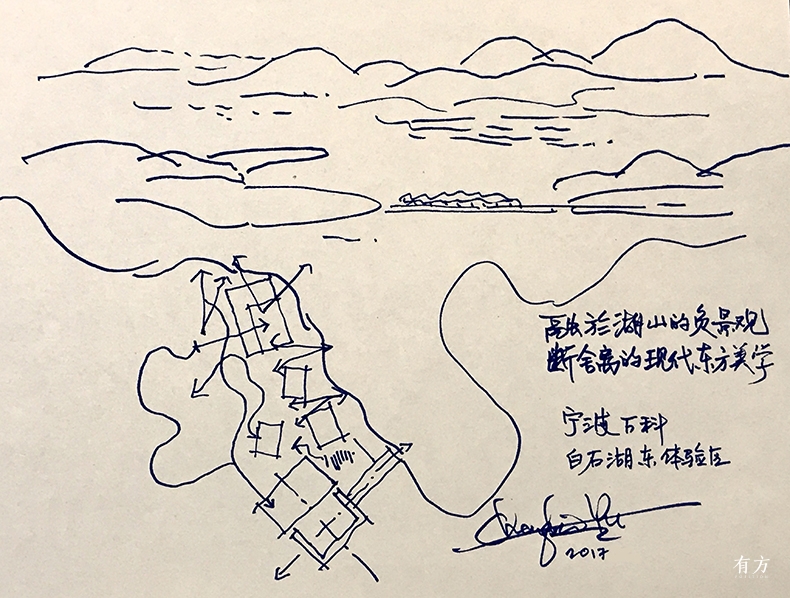 融於湖山的负景观
断舍离的现代东方美学
宁波万科
白石湖东体验区
2017
有方